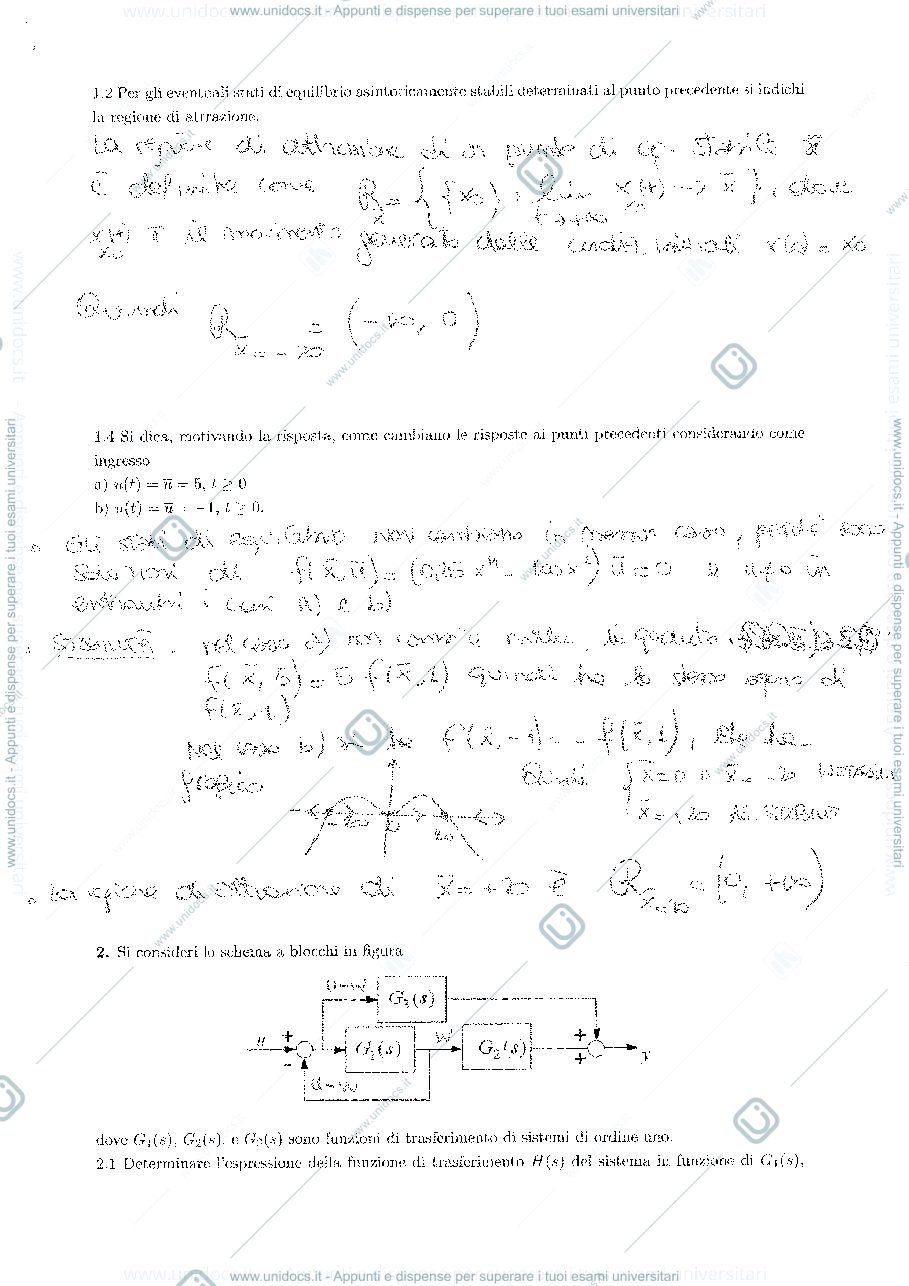 www.unidocs.it - Appunti e dispense per superare i tuoi esami universitari
1.2 Per gli eventuali stati di equilibrio asintoticamente stabili determinati al punto precedente si indichi
la regione di attrazione.
La regione di attrazione di un punto di eq. stabile x̄
è definita come R_x̄ = { {x0} : lim t→+∞ x(t) → x̄ }, dove
x(t) è il movimento generato dalle condiz. iniziali x(0) = x0
Quindi R_x̄=-20 = (-∞, 0)
1.4 Si dica, motivando la risposta, come cambiano le risposte ai punti precedenti considerando come
ingresso
a) u(t) = ū = 5, t ≥ 0
b) u(t) = ū = -1, t ≥ 0.
Gli stati di equilibrio non cambiano in nessun caso, perché sono
soluzioni di f(x̄, ū) = (0,25 x⁴ - 100 x²) ū = 0 e u≠0 in
entrambi i casi a) e b)
Stabilità. nel caso a) non cambia nulla, in quanto
f(x̄, 5) = 5 f(x̄, 1) quindi ho lo stesso segno di
f(x̄, 1)
Nel caso b) si ha f(x̄, -1) = - f(x̄, 1),
grafico
Quindi x̄=0 o x̄=-20
x̄=+20
-20 0 20
La regione di attrazione di x̄=+20 è R_x̄=20 = (0, +∞)
2. Si consideri lo schema a blocchi in figura
u-w
G3(s)
u + - G1(s) w G2(s) + + y
u-w
dove G1(s), G2(s), e G3(s) sono funzioni di trasferimento di sistemi di ordine uno.
2.1 Determinare l'espressione della funzione di trasferimento H(s) del sistema in funzione di G1(s),
www.unidocs.it - Appunti e dispense per superare i tuoi esami universitari